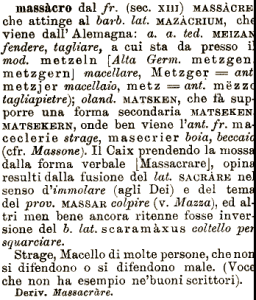 massàcro dal fr. (sec. XIII) MASSÀCRE
che attinge al barb. lat. MAZÀCRIUM, che
viene dall'Alemagna: a. a. ted. MEIZAN
fendere, tagliare, a cui sta da presso il
mod. metzeln [Alta Germ. metzgen,
metzgern] macellare, Metzger = ant.
metzjer macellaio, metz = ant. mëzzo
tagliapietre); oland. MATSKEN, che fà sup-
porre una forma secondaria MATSEKEN,
MATSEKERN, onde ben viene l'ant. fr. ma-
ceclerie strage, masecrier boia, beccaio
(cfr. Massone). Il Caix prendendo la mossa
dalla forma verbale [Massacrare], opina
resulti dalla fusione del lat. SACRÀRE nel
senso d'immolare (agli Dei) e del tema
del prov. MASSAR colpire (v. Mazza), ed al-
tri men bene ancora ritenne fosse inver-
sione del b. lat. scaramàxus coltello per
squarciare.
Strage, Macello di molte persone, che non
si difendono o si difendono male. (Voce
che non ha esempio ne'buoni scrittori).
Deriv. Massacràre.